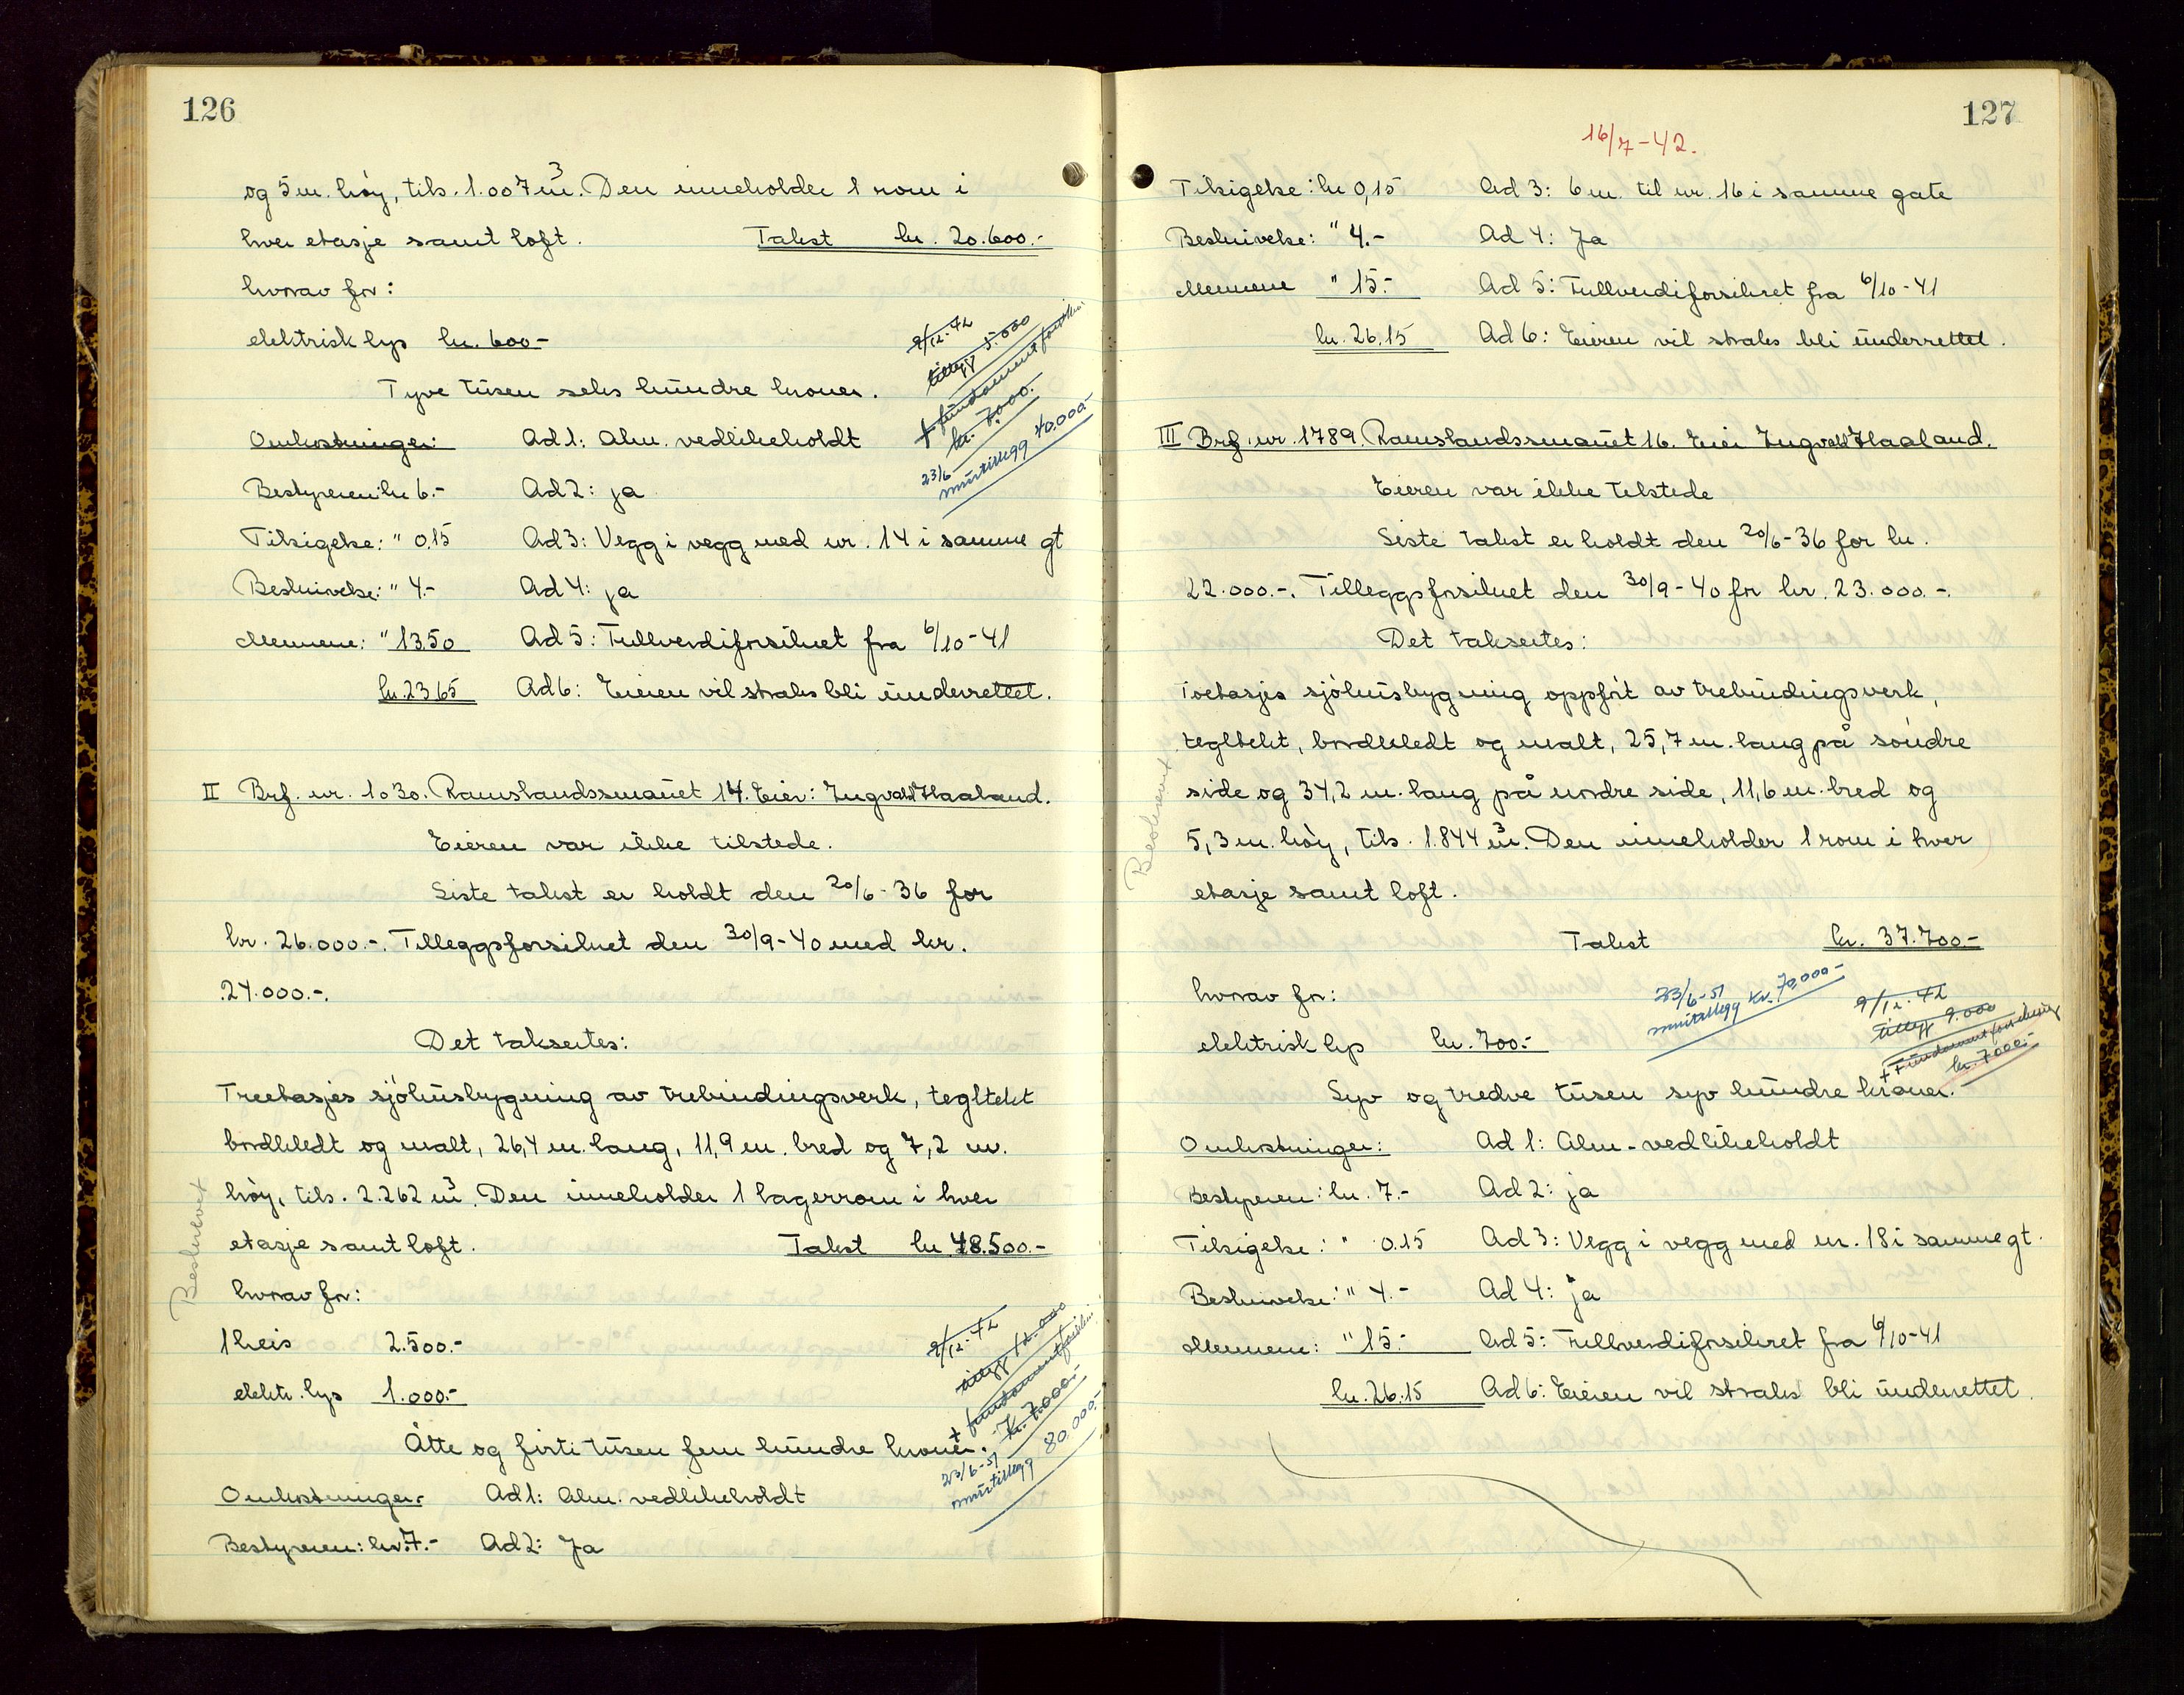 126
og 5 m. høy, tils. 1.007 m³. Den inneholder 1 rom i
hver etasje samt loft. Takst kr. 20.600.-
hvorav for:
elektrisk lys kr. 600.-
Tyve tusen seks hundre kroner.
9/12-42
tillegg 5.000
+ fundamentforsikr.
kr. 7.000.
23/6
murtillegg 40.000.-
Omkostninger: Ad 1: Alm. vedlikeholdt
Bestyreren: kr 6.- Ad 2: ja
Tilsigelse: " 0.15 Ad 3: Vegg i vegg med nr. 14 i samme gt
Beskrivelse: " 4.- Ad 4: ja
Mennene: " 13.50 Ad 5: Fullverdiforsikret fra 6/10-41
kr. 23.65 Ad 6: Eieren vil straks bli underrettet.
II Brf. nr. 1030. Ramslandssmauet 14. Eier: Ingvald Haaland.
Eieren var ikke tilstede.
Siste takst er holdt den 20/6-36 for
kr. 26.000.-. Tilleggsforsikret den 30/9-40 med kr.
24.000.-.
Det takseres:
Treetasjes sjøhusbygning av trebindingsverk, tegltekt
bordkledt og malt, 26,4 m. lang, 11,9 m. bred og 7,2 m.
høy, tils. 2.262 m³. Den inneholder 1 lagerrom i hver
etasje samt loft. Takst kr 48.500.-
Beskrevet
hvorav for:
1 heis 2.500.-
elektr. lys 1.000.-
Åtte og førti tusen fem hundre kroner.
9/12-42
tillegg 12.000
+ fundamentforsikr.
kr. 7.000.-
23/6-51
murtillegg 80.000.-
Omkostninger Ad 1: Alm. vedlikeholdt
Bestyreren: kr. 7.- Ad 2: Ja
127
16/7-42.
Tilsigelse: kr 0,15 Ad 3: 6 m. til nr. 16 i samme gate
Beskrivelse: " 4.- Ad 4: Ja
Mennene " 15.- Ad 5: Fullverdiforsikret fra 6/10-41
kr. 26.15 Ad 6: Eieren vil straks bli underrettet.
III Brf. nr. 1789. Ramslandssmauet 16. Eier Ingvald Haaland.
Eieren var ikke tilstede
Siste takst er holdt den 20/6-36 for kr.
22.000.-. Tilleggsforsikret den 30/9-40 for kr. 23.000.-.
Det takseres:
Toetasjes sjøhusbygning oppført av trebindingsverk,
tegltekt, bordkledt og malt, 25,7 m. lang på søndre
side og 34,2 m. lang på nordre side, 11,6 m. bred og
5,3 m. høy, tils. 1.844 m³. Den inneholder 1 rom i hver
etasje samt loft.
Beskrevet
Takst kr. 37.700.-
hvorav for:
23/6-51
murtillegg kr. 70,000-
elektrisk lys kr. 700.-
9/12-42
tillegg 9.000
+ Fundamentforsikring
kr. 7000.-
Syv og tredve tusen syv hundre kroner.
Omkostninger: Ad 1: Alm. vedlikeholdt
Bestyreren: kr. 7.- Ad 2: ja
Tilsigelse: " 0.15 Ad 3: Vegg i vegg med nr. 18 i samme gt.
Beskrivelse: " 4.- Ad 4: ja
Mennene: " 15.- Ad 5: Fullverdiforsikret fra 6/10-41
kr. 26.15 Ad 6: Eieren vil straks bli underrettet.